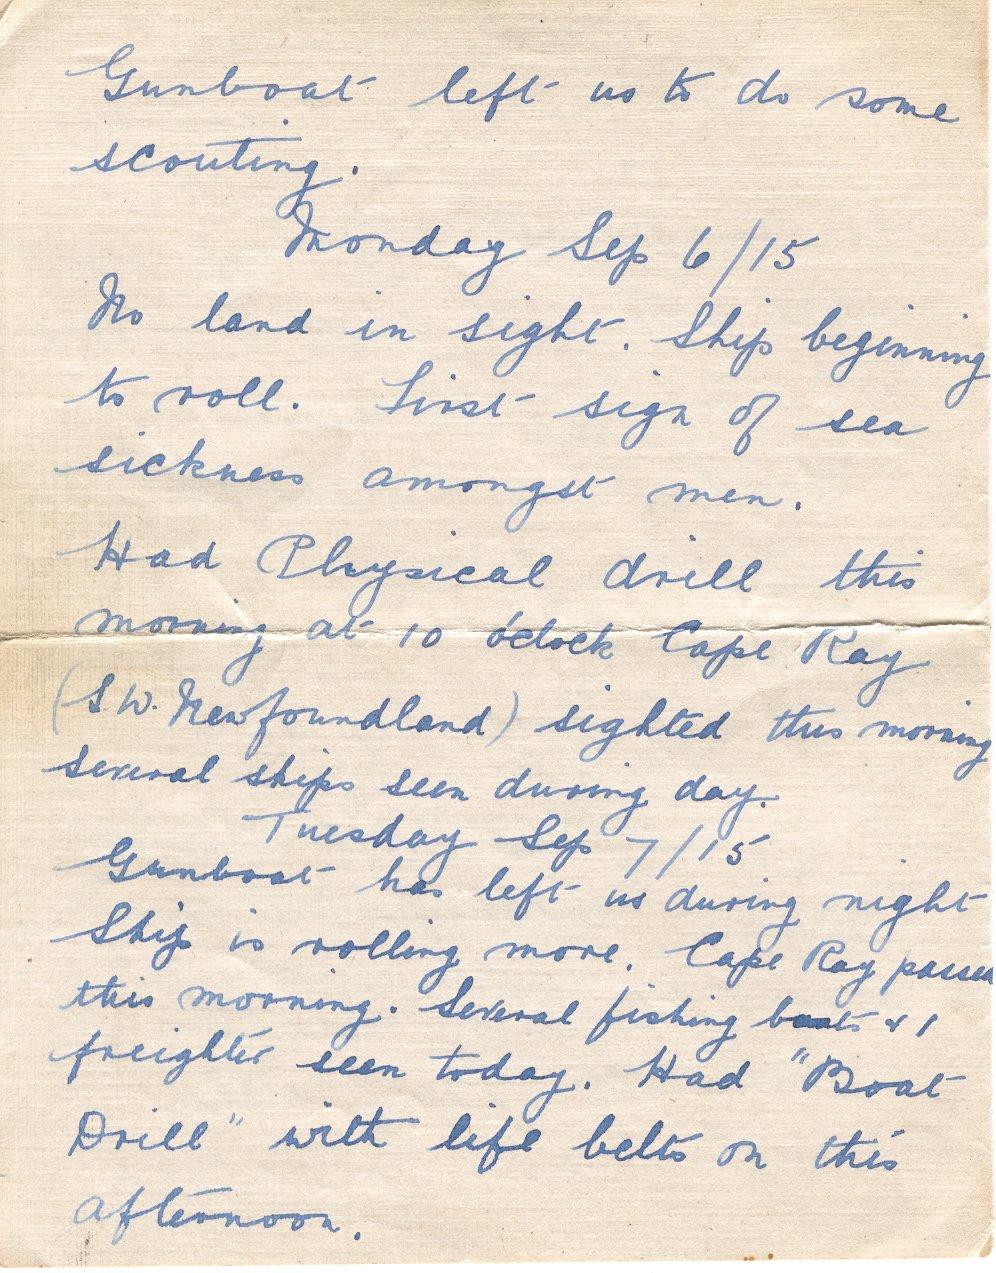 Gunboat left us to do some
scouting.
Monday Sep 6/15
No land in sight. Ship beginning
to roll. First sign of sea
sickness amongst men.
Had Physical drill this
morning at 10 o'clock Cape Ray
(S W. Newfoundland) sighted this morning
several ships seen during day.
Tuesday Sep 7/15
Gunboat has left us during night
Ship is rolling more. Cape Ray passed
this morning. Several fishing boats & 1
freighter seen today. Had "Boat
Drill" with life belts on this
afternoon.